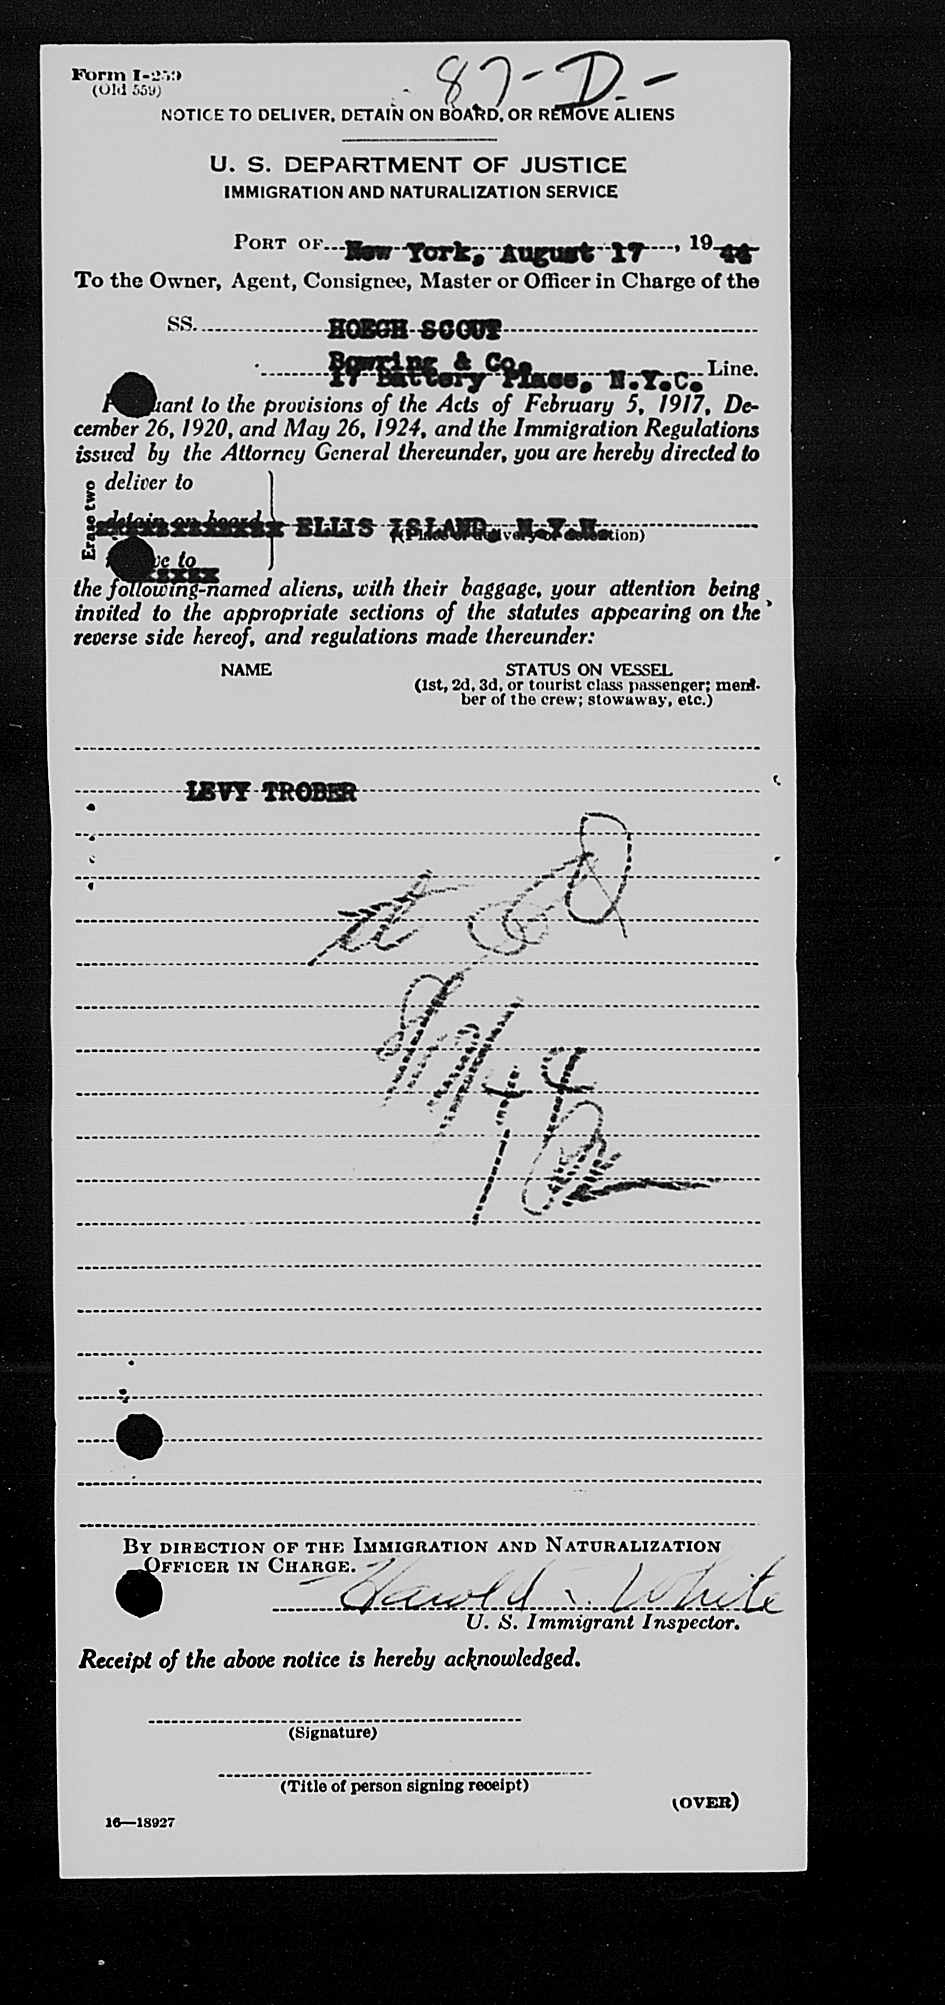 Form I-259
(Old 559)
87-D.-
NOTICE TO DELIVER, DETAIN ON BOARD, OR REMOVE ALIENS
U. S. DEPARTMENT OF JUSTICE
IMMIGRATION AND NATURALIZATION SERVICE
PORT OF New York, August 17, 1944
To the Owner, Agent, Consignee, Master or Officer in Charge of the
SS. HOEGH SCOUT
Bowring & Co.
17 Battery Place, N.Y.C. Line.
Pursuant to the provisions of the Acts of February 5, 1917, De-
cember 26, 1920, and May 26, 1924, and the Immigration Regulations
issued by the Attorney General thereunder, you are hereby directed to
deliver to
Erase two
detain on board ELLIS ISLAND, N.Y.H.
(Place of delivery or detention)
to
the following-named aliens, with their baggage, your attention being
invited to the appropriate sections of the statutes appearing on the
reverse side hereof, and regulations made thereunder:
NAME STATUS ON VESSEL
(1st, 2d, 3d, or tourist class passenger; mem-
ber of the crew; stowaway, etc.)
LEVY TROBER
BY DIRECTION OF THE IMMIGRATION AND NATURALIZATION
OFFICER IN CHARGE.
Harold White
U. S. Immigrant Inspector.
Receipt of the above notice is hereby acknowledged.
(Signature)
(Title of person signing receipt)
(OVER)
16—18927